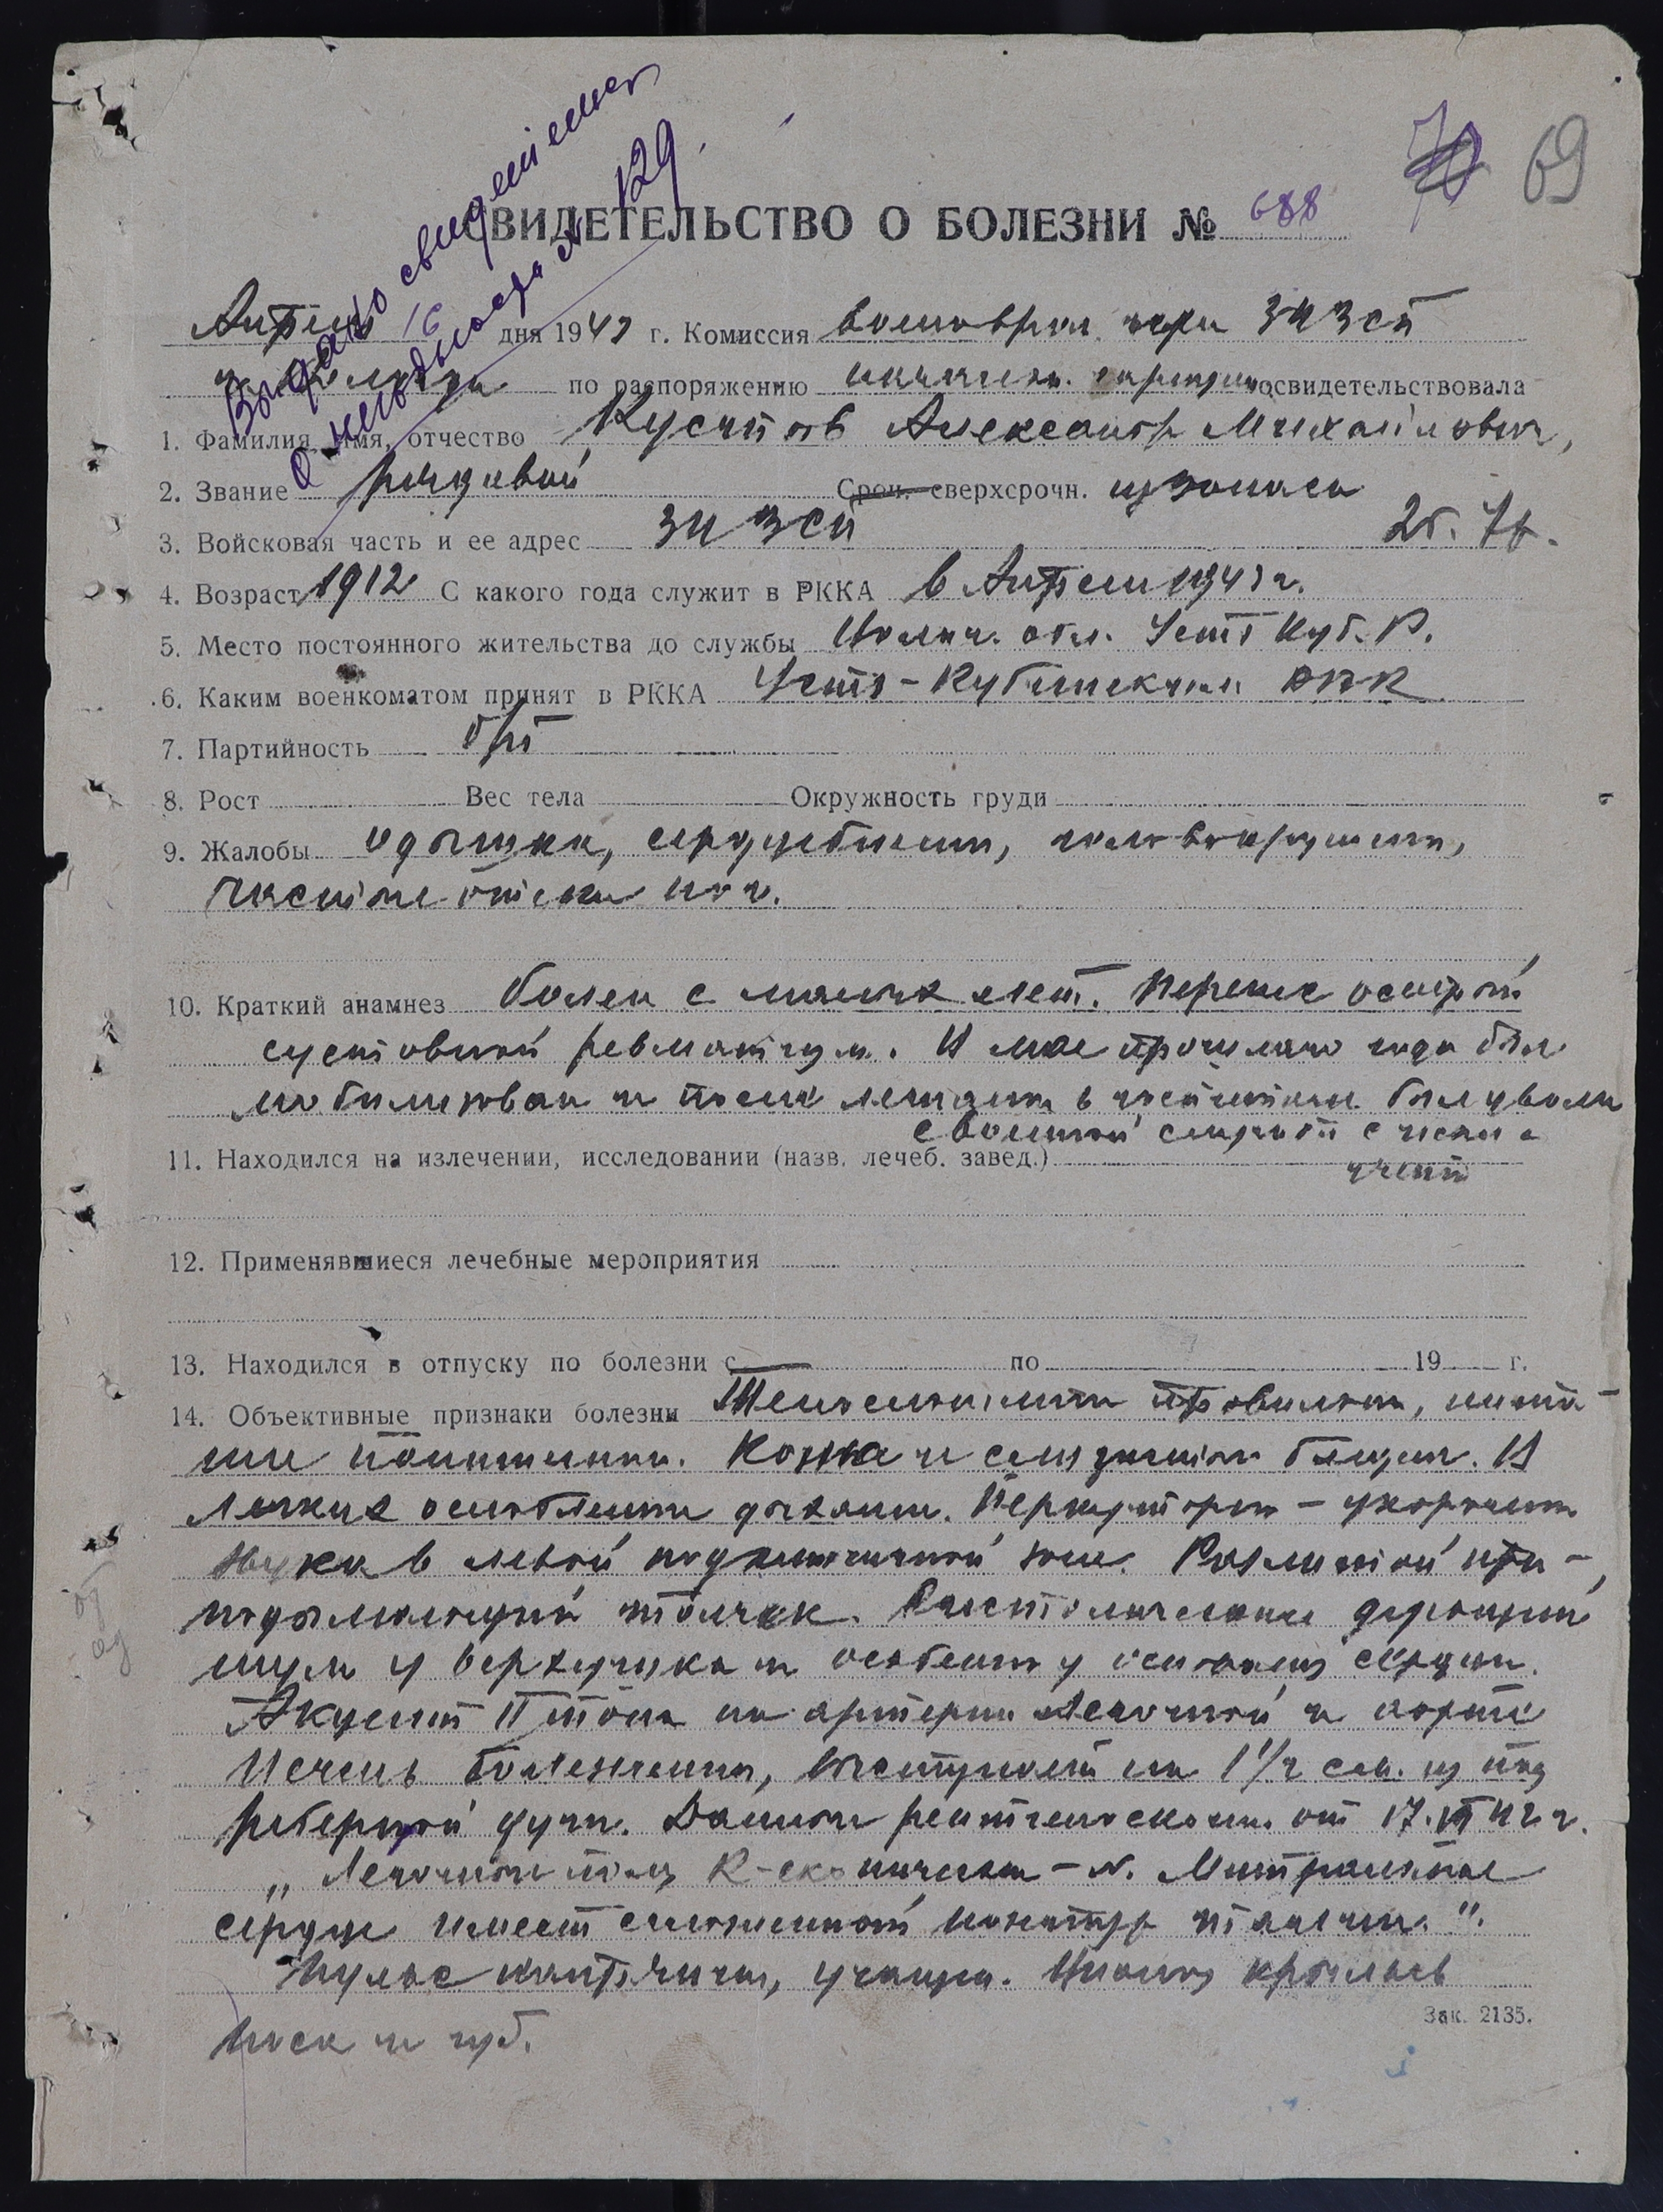 Выдано свидетельст
о негодности № 129.
70 69
СВИДЕТЕЛЬСТВО О БОЛЕЗНИ № 688
16 дня 1943 г. Комиссия при 34 зсп
по распоряжению освидетельствовала
1. Фамилия, имя, отчество Александр Михайлович,
2. Звание рядовой Сроч. сверхсрочн. из запаса
3. Войсковая часть и ее адрес 34 зсп
4. Возраст 1912 С какого года служит в РККА в Апреле 1943 г.
5. Место постоянного жительства до службы обл. Усть Куб. Р.
6. Каким военкоматом принят в РККА Усть-Кубинским РВК
7. Партийность б/п
8. Рост Вес тела Окружность груди
9. Жалобы одышка, сердцебиение, головокружение,
частые отеки ног.
10. Краткий анамнез болен с малых лет. Перенес острый
суставной ревматизм. В мае прошлого года был
мобилизован и после лечения в госпитале был уволен
с военной службы с
учета
11. Находился на излечении, исследовании (назв. лечеб. завед.)
12. Применявшиеся лечебные мероприятия
13. Находился в отпуску по болезни с по 19 г.
14. Объективные признаки болезни Телосложения правильного, пита-
ние пониженное. Кожа и слизистые бледны. В
легких ослабленное дыхание. Перкуторно - укорочение
звука в левой подключичной зоне. Разлитой при-
подымающий толчок. Систолический дующий
шум у верхушки и особенно у основания сердца.
Акцент II тона на артерии легочной и аорте
Печень болезненна, выступает на 1 1/2 см. из под
реберной дуги. Данные рентгеноскопии от 17.VI 42 г.
„Легочные поля R-скопически - N. Митральное
сердце имеет
Пульс учащен. Цианоз крыльев
носа и губ.
Зак. 2135.